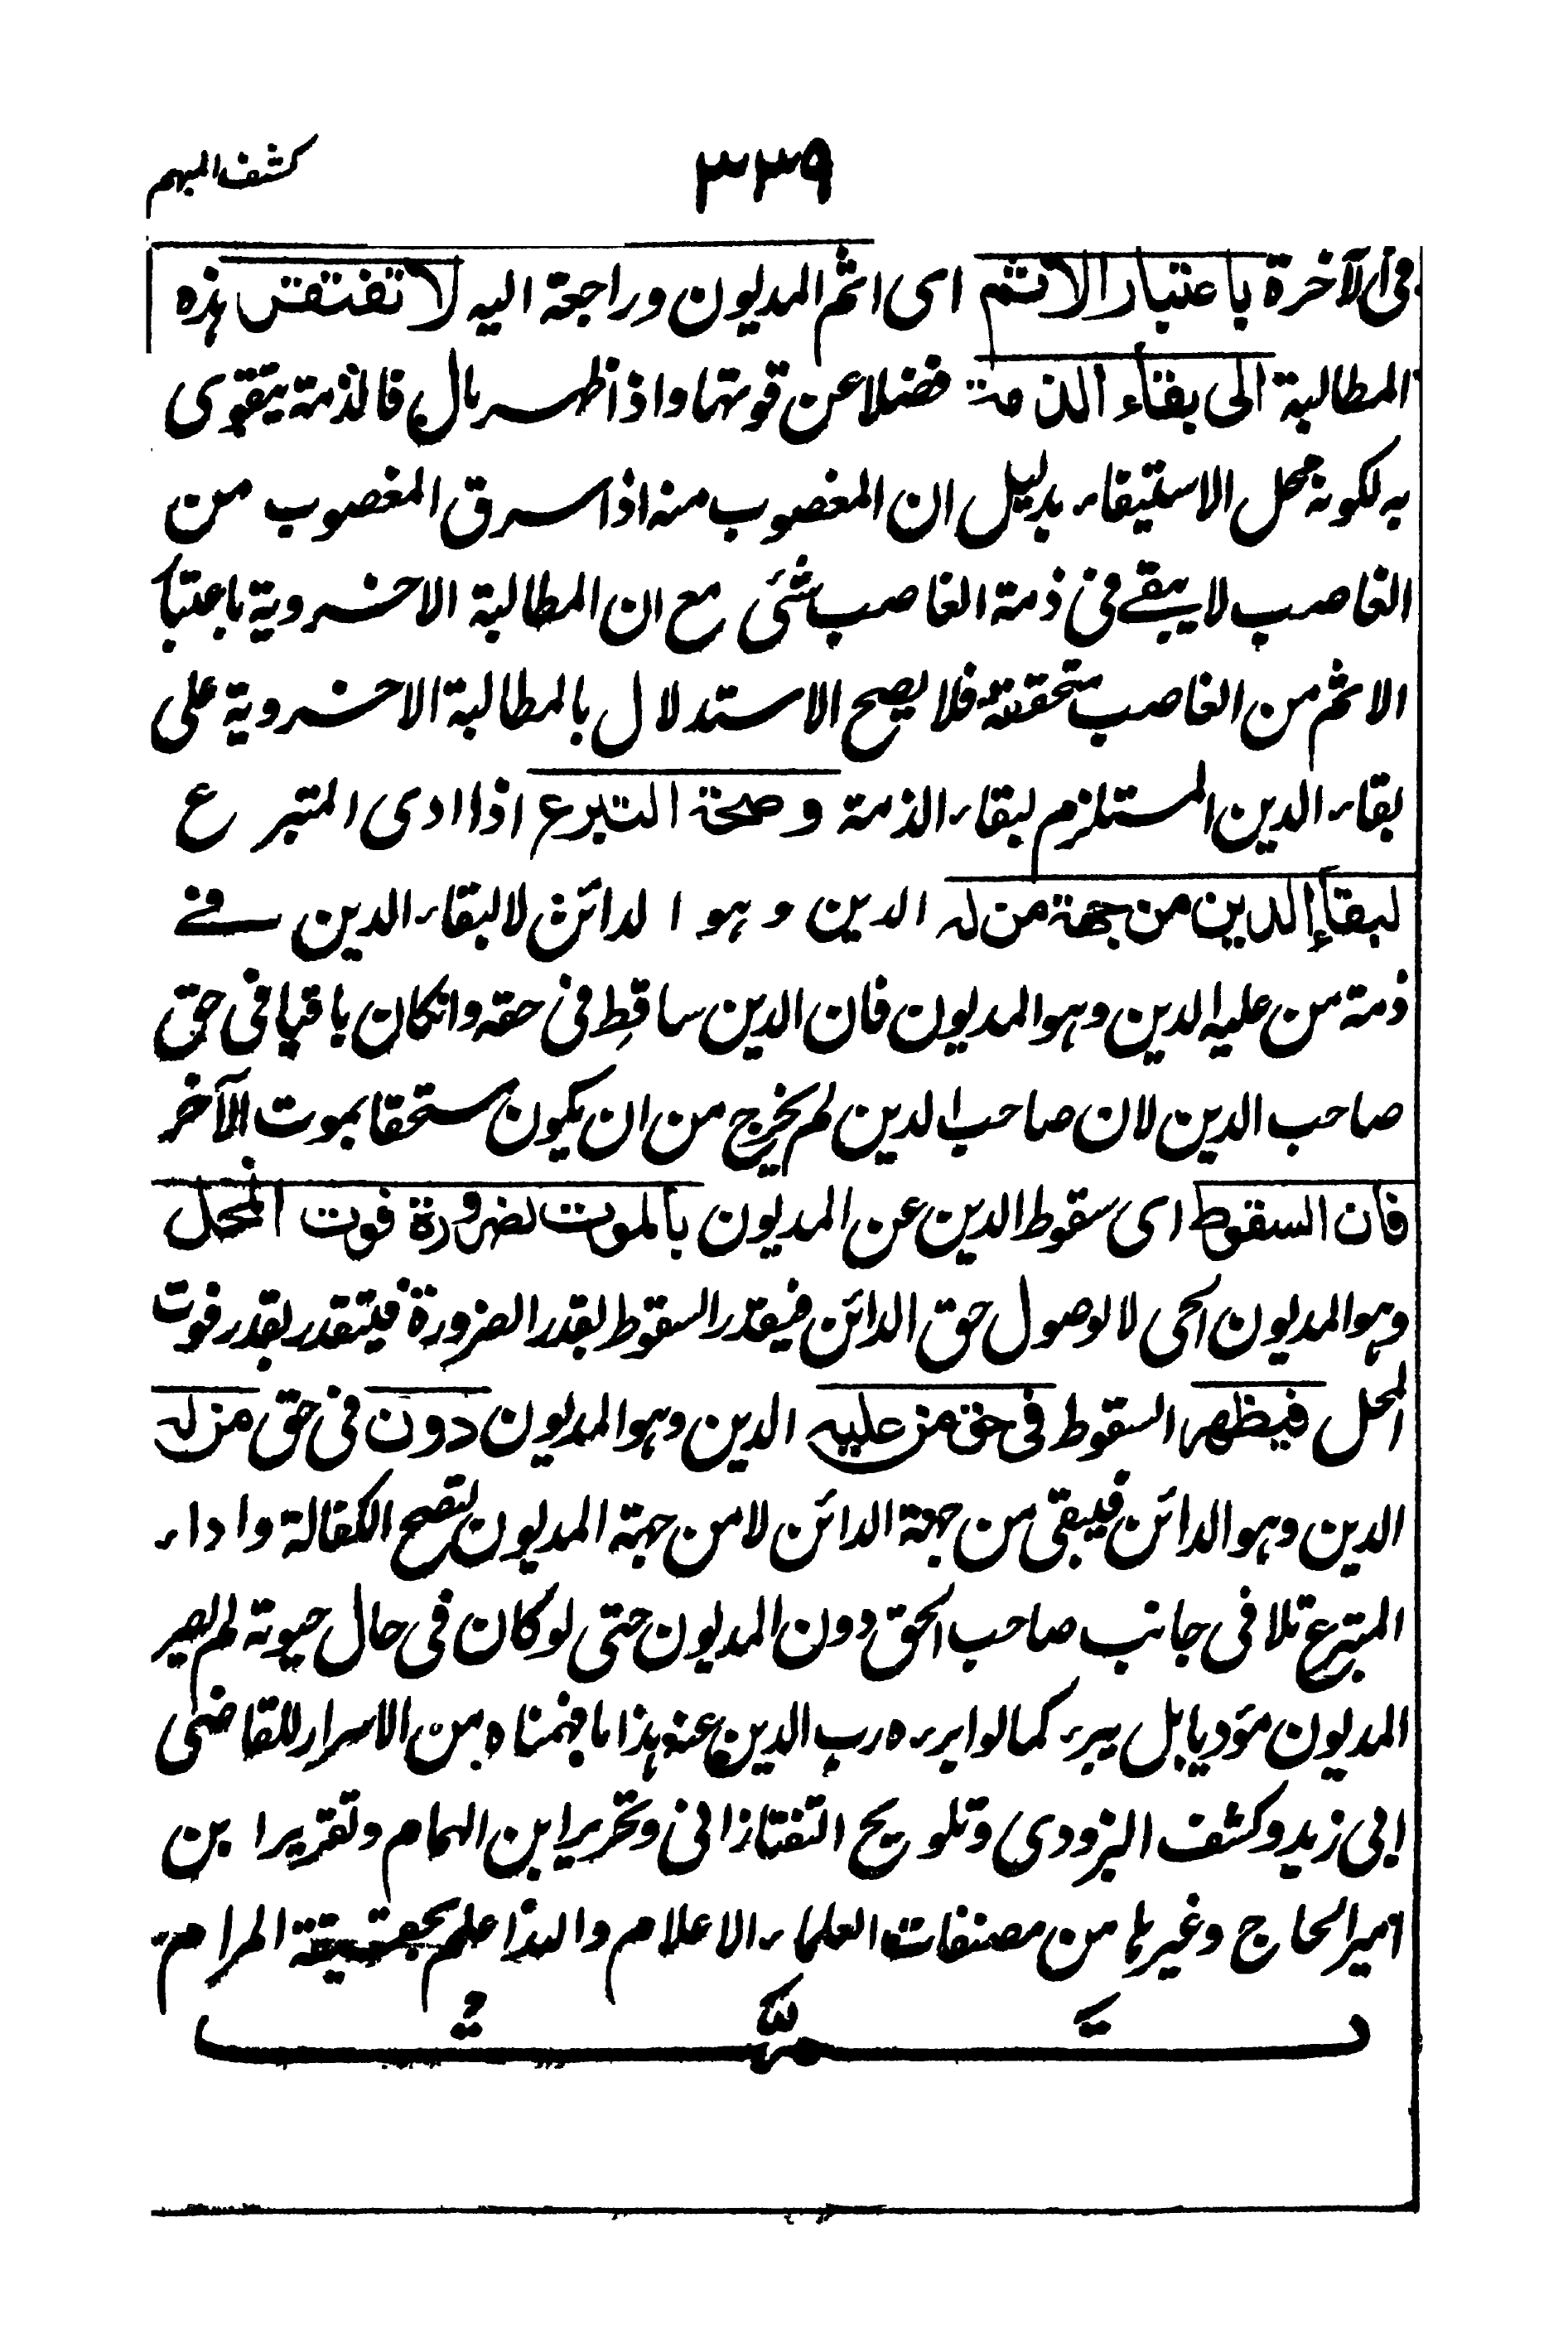 كشف المبهم
٣٣٩
فى الآخرة باعتبار الاثم اى اثم المديون وراجعة اليه لا تفتقر هذه
المطالبة الى بقاء الذمة فضلا عن قوتها واذا ظهر مال فالذمة يتقوى
به لكونه محل الاستيفاء بدليل ان المغصوب منه اذا سرق المغصوب من
الغاصب لا يبقے فى ذمة الغاصب شئ مع ان المطالبة الاخروية باعتبا
الاثم من الغاصب متحققة فلا يصح الاستدلال بالمطالبة الاخروية على
بقاء الدين المستلزم لبقاء الذمة وصحة التبرع اذا ادى المتبرع
لبقاء الدين من جهة من له الدين وهو الدائن لا لبقاء الدين فے
ذمة من عليه الدين وهو المديون فان الدين ساقط فى حقه وانكان باقيا فى حق
صاحب الدين لان صاحب الدين لم يخرج من ان يكون مستحقا بموت الآخر
فان السقوط اى سقوط الدين عن المديون بالموت لضرورة فوت المحل
وهو المديون الحى لا لوصول حق الدائن فيقدر السقوط بقدر الضرورة فيتقدر بقدر فوت
المحل فيظهر السقوط فى حق من عليه الدين وهو المديون دون فى حق من له
الدين وهو الدائن فيبقى من جهة الدائن لا من جهة المديون لتصح الكفالة واداء
المتبرع تلافى جانب صاحب الحق دون المديون حتى لو كان فى حال حيوته لم يصر
المديون مؤديا بل يبرء كما لو ابرءه رب الدين عنه هذا ما فهمناه من الاسرار للقاضى
ابى زيد وكشف البزودى وتلويح التفتازانى وتحرير ابن الهمام وتقرير ابن
امير الحاج وغيرها من مصنفات العلماء الاعلام والله اعلم بحقيقة المرام